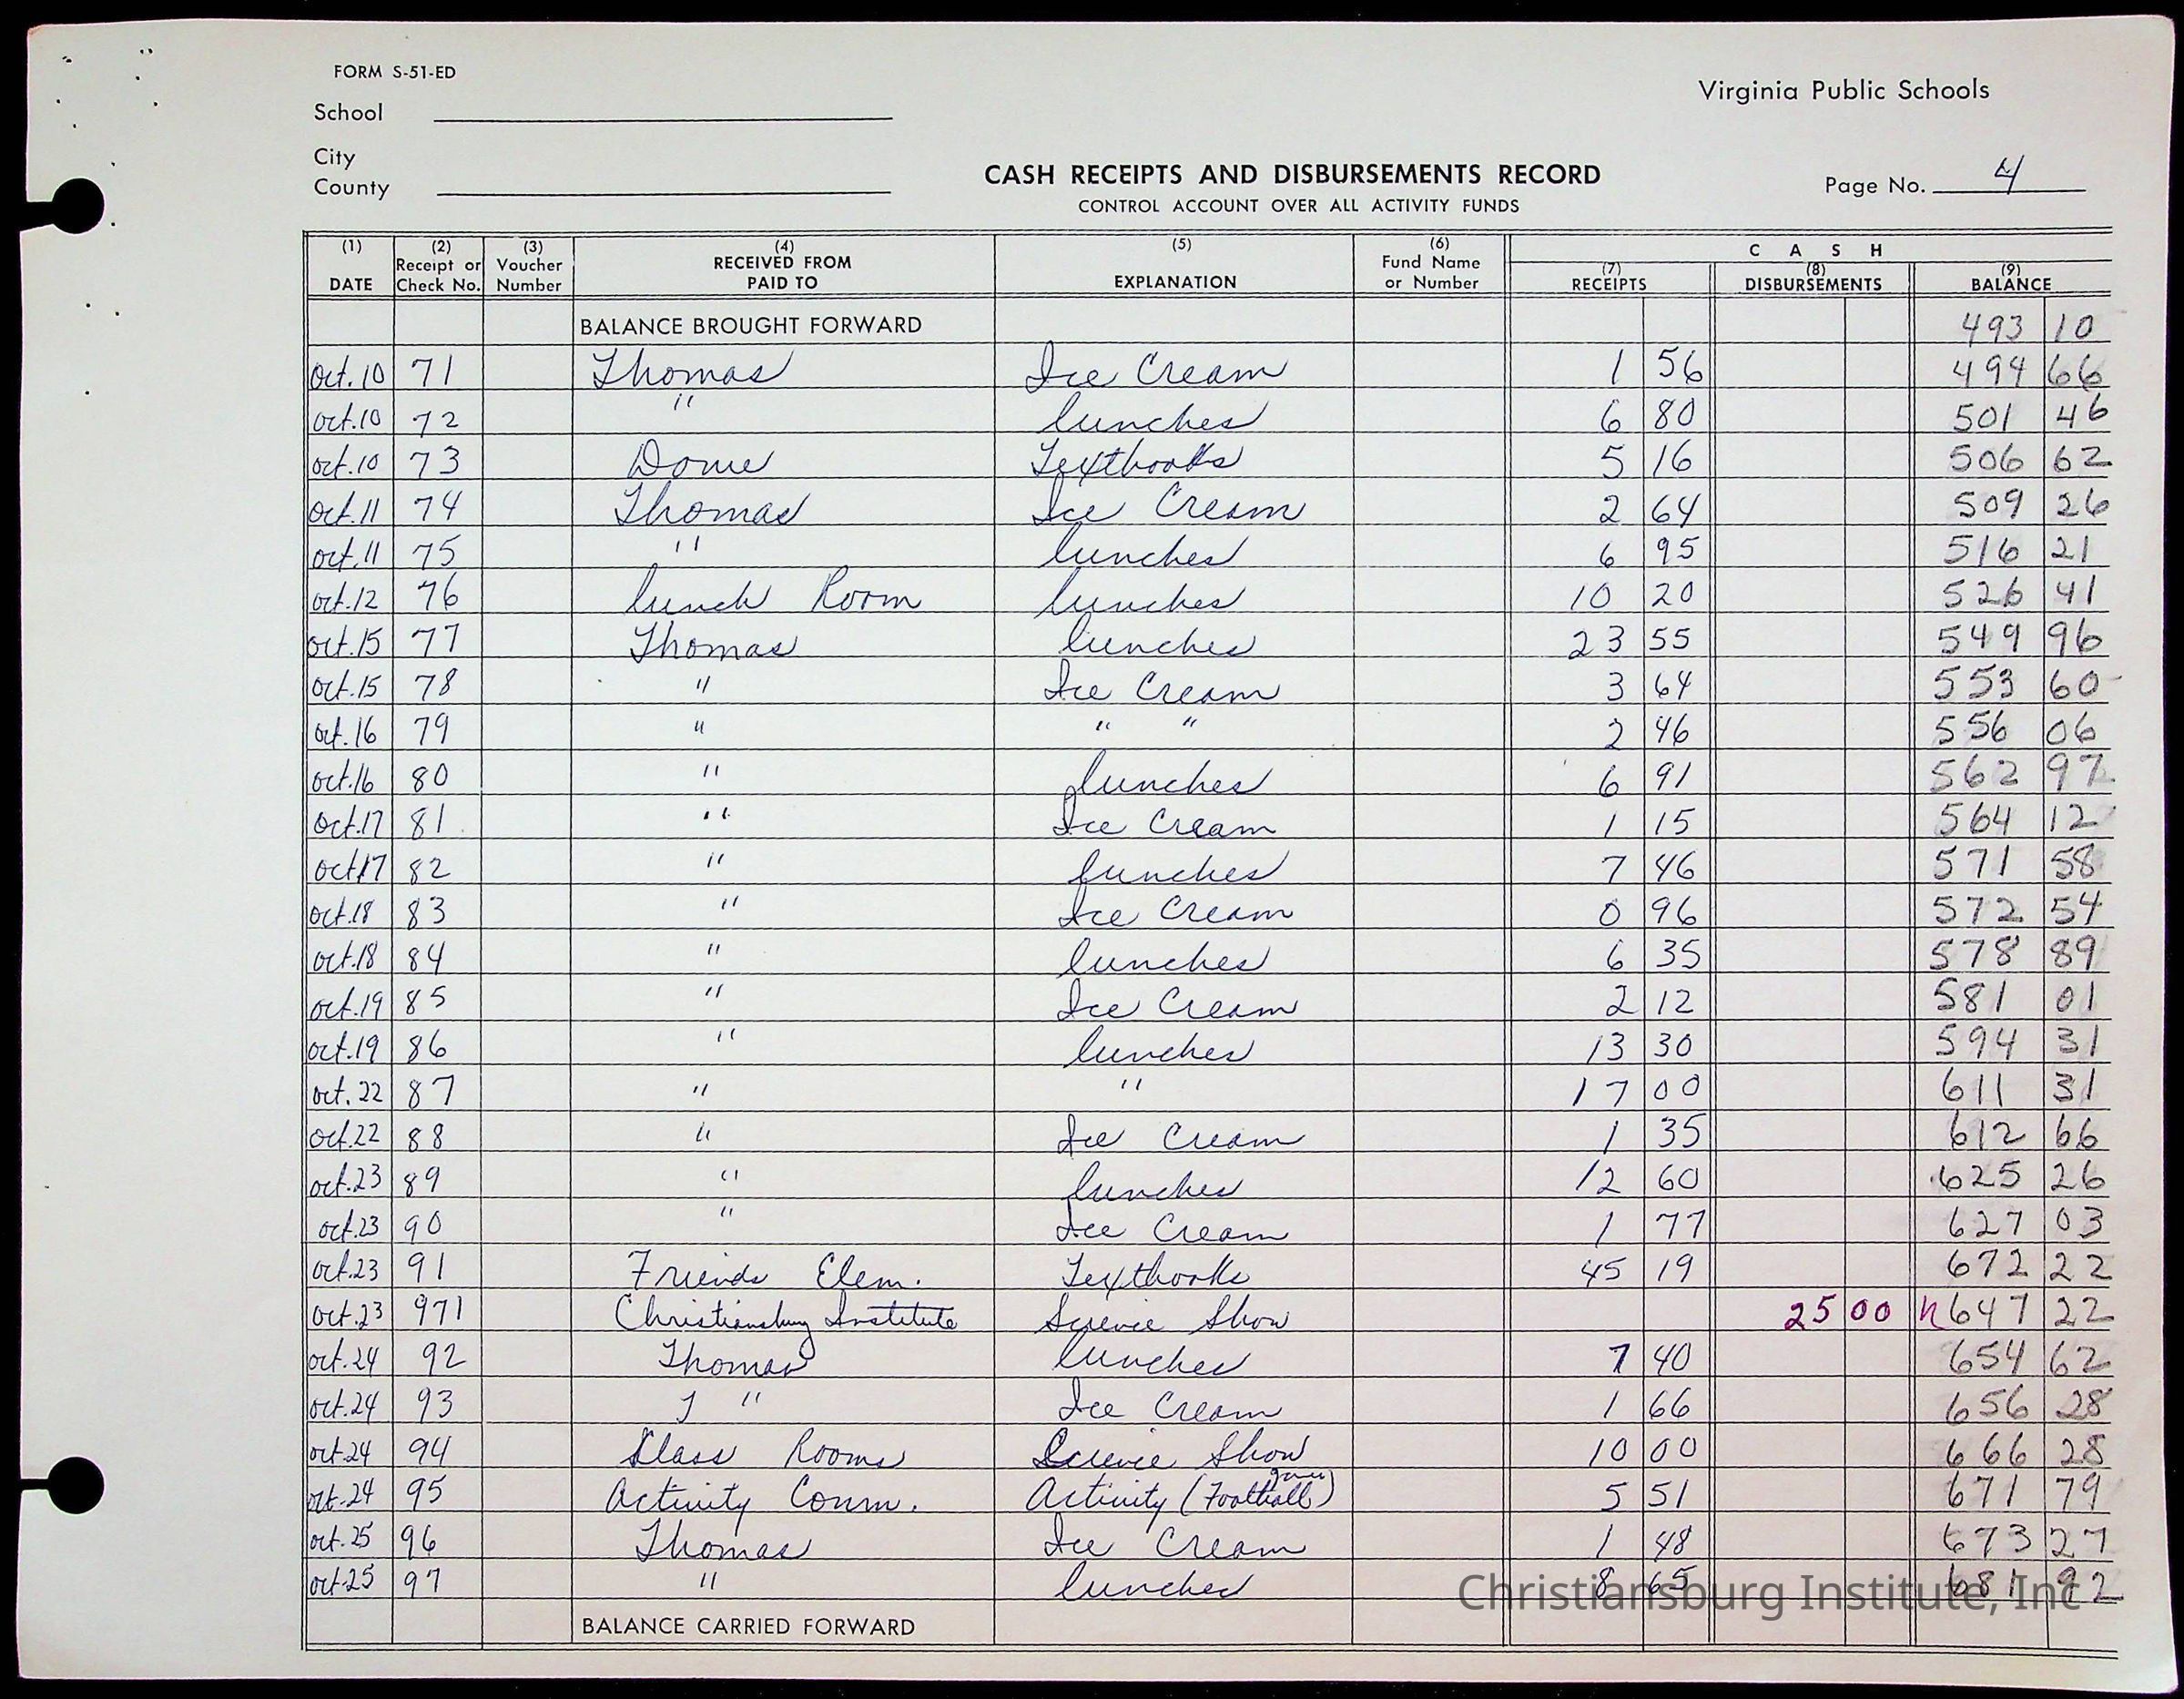 FORM S-51-ED
Virginia Public Schools
School
City
County
CASH RECEIPTS AND DISBURSEMENTS RECORD
CONTROL ACCOUNT OVER ALL ACTIVITY FUNDS
Page No. 4
(1) DATE (2) Receipt or Check No. (3) Voucher Number (4) RECEIVED FROM PAID TO (5) EXPLANATION (6) Fund Name or Number CASH (7) RECEIPTS (8) DISBURSEMENTS (9) BALANCE
BALANCE BROUGHT FORWARD 493 10
Oct. 10 71 Thomas Ice Cream 1 56 494 66
oct. 10 72 " lunches 6 80 501 46
oct. 10 73 Textbooks 5 16 506 62
oct. 11 74 Thomas Ice Cream 2 64 509 26
oct. 11 75 " lunches 6 95 516 21
oct. 12 76 lunch Room lunches 10 20 526 41
oct. 15 77 Thomas lunches 23 55 549 96
oct. 15 78 " Ice Cream 3 64 553 60
oct. 16 79 " " " 2 46 556 06
oct. 16 80 " lunches 6 91 562 97
oct. 17 81 " Ice Cream 1 15 564 12
oct 17 82 " lunches 7 46 571 58
oct. 18 83 " Ice Cream 0 96 572 54
oct. 18 84 " lunches 6 35 578 89
oct. 19 85 " Ice Cream 2 12 581 01
oct. 19 86 " lunches 13 30 594 31
oct. 22 87 " " 17 00 611 31
oct. 22 88 " Ice Cream 1 35 612 66
oct. 23 89 " lunches 12 60 625 26
oct. 23 90 " Ice Cream 1 77 627 03
oct. 23 91 Friends Elem. Textbooks 45 19 672 22
oct. 23 971 Christiansburg Institute Science Show 25 00 647 22
oct. 24 92 Thomas lunches 7 40 654 62
oct. 24 93 " Ice Cream 1 66 656 28
oct. 24 94 Class Rooms Science Show 10 00 666 28
oct. 24 95 Activity Comm. Activity (Football game) 5 51 671 79
oct. 25 96 Thomas Ice Cream 1 48 673 27
oct. 25 97 " lunches 8 65 681 92
Christiansburg Institute, Inc
BALANCE CARRIED FORWARD